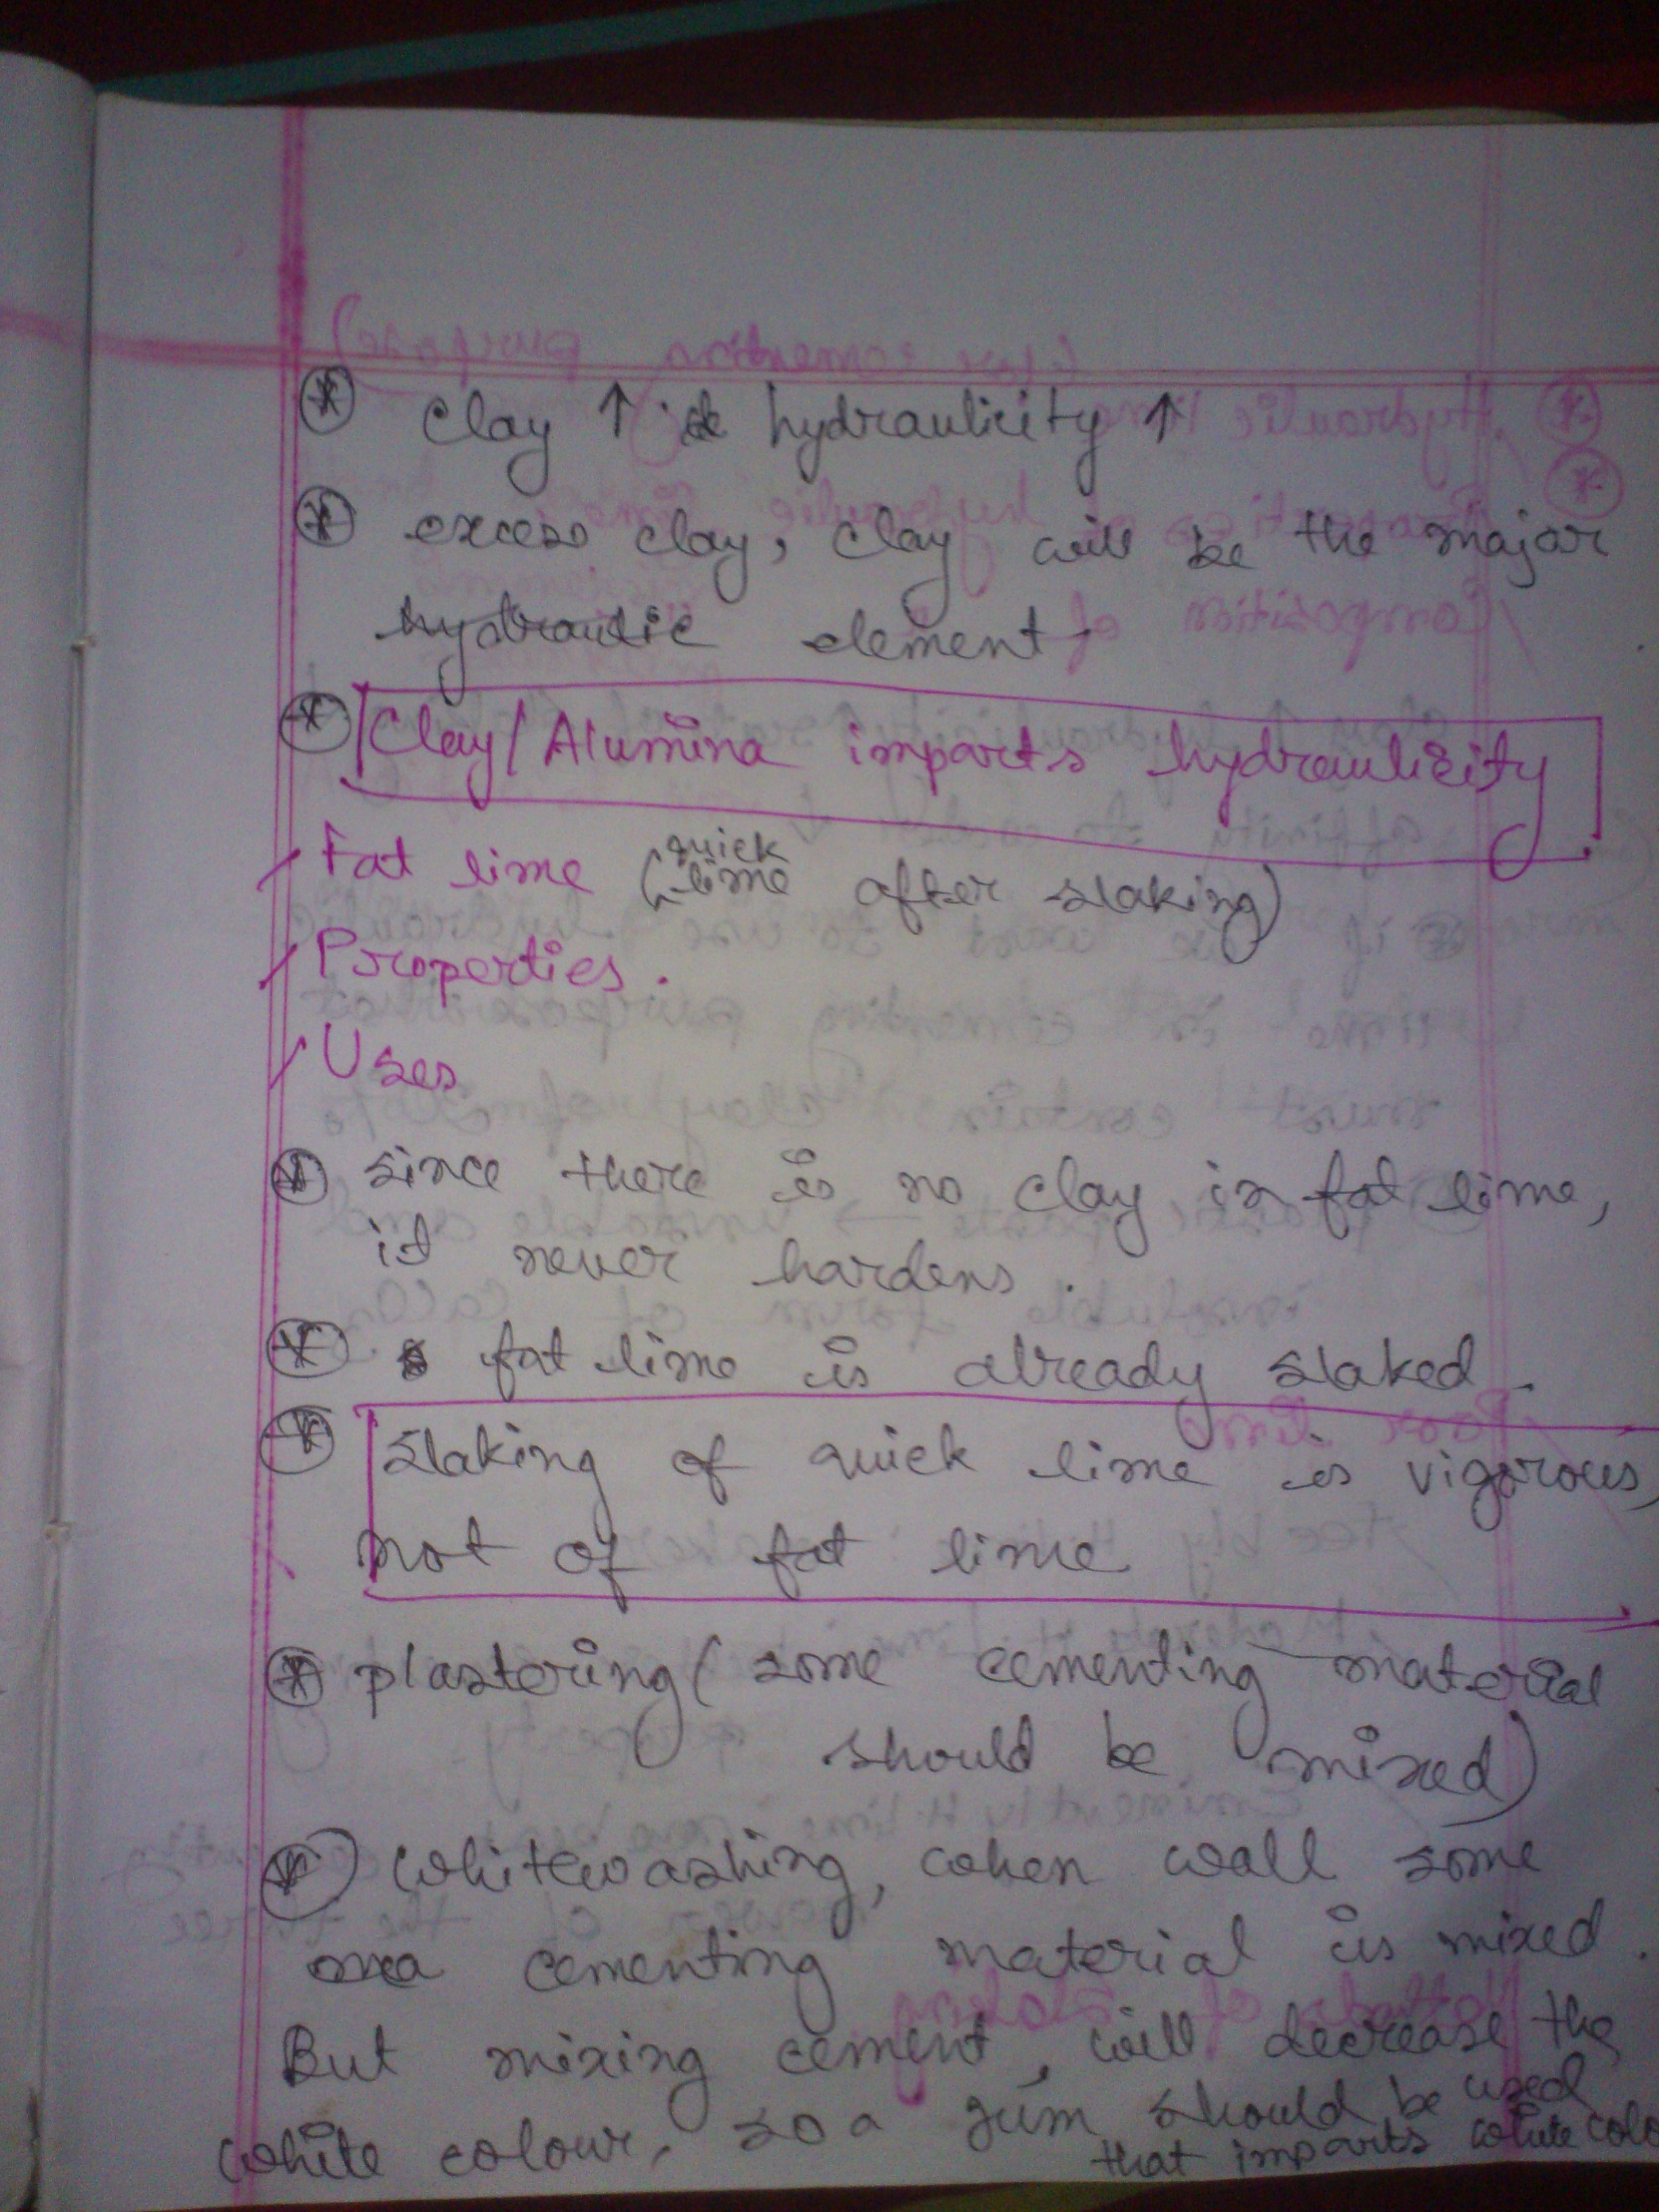 * Clay ↑ hydraulicity ↑
* excess clay, clay will be the major
hydraulic element.
* Clay/Alumina imparts hydraulicity
Fat lime (quick lime after slaking)
Properties.
Uses
* since there is no clay in fat lime,
it never hardens.
* fat lime is already slaked.
* Slaking of quick lime is vigorous,
not of fat lime
* plastering (some cementing material
should be mixed)
* Whitewashing, when wall some
cementing material is mixed.
But mixing cement, will decrease the
white colour, so a gum should be used
that imparts white colo